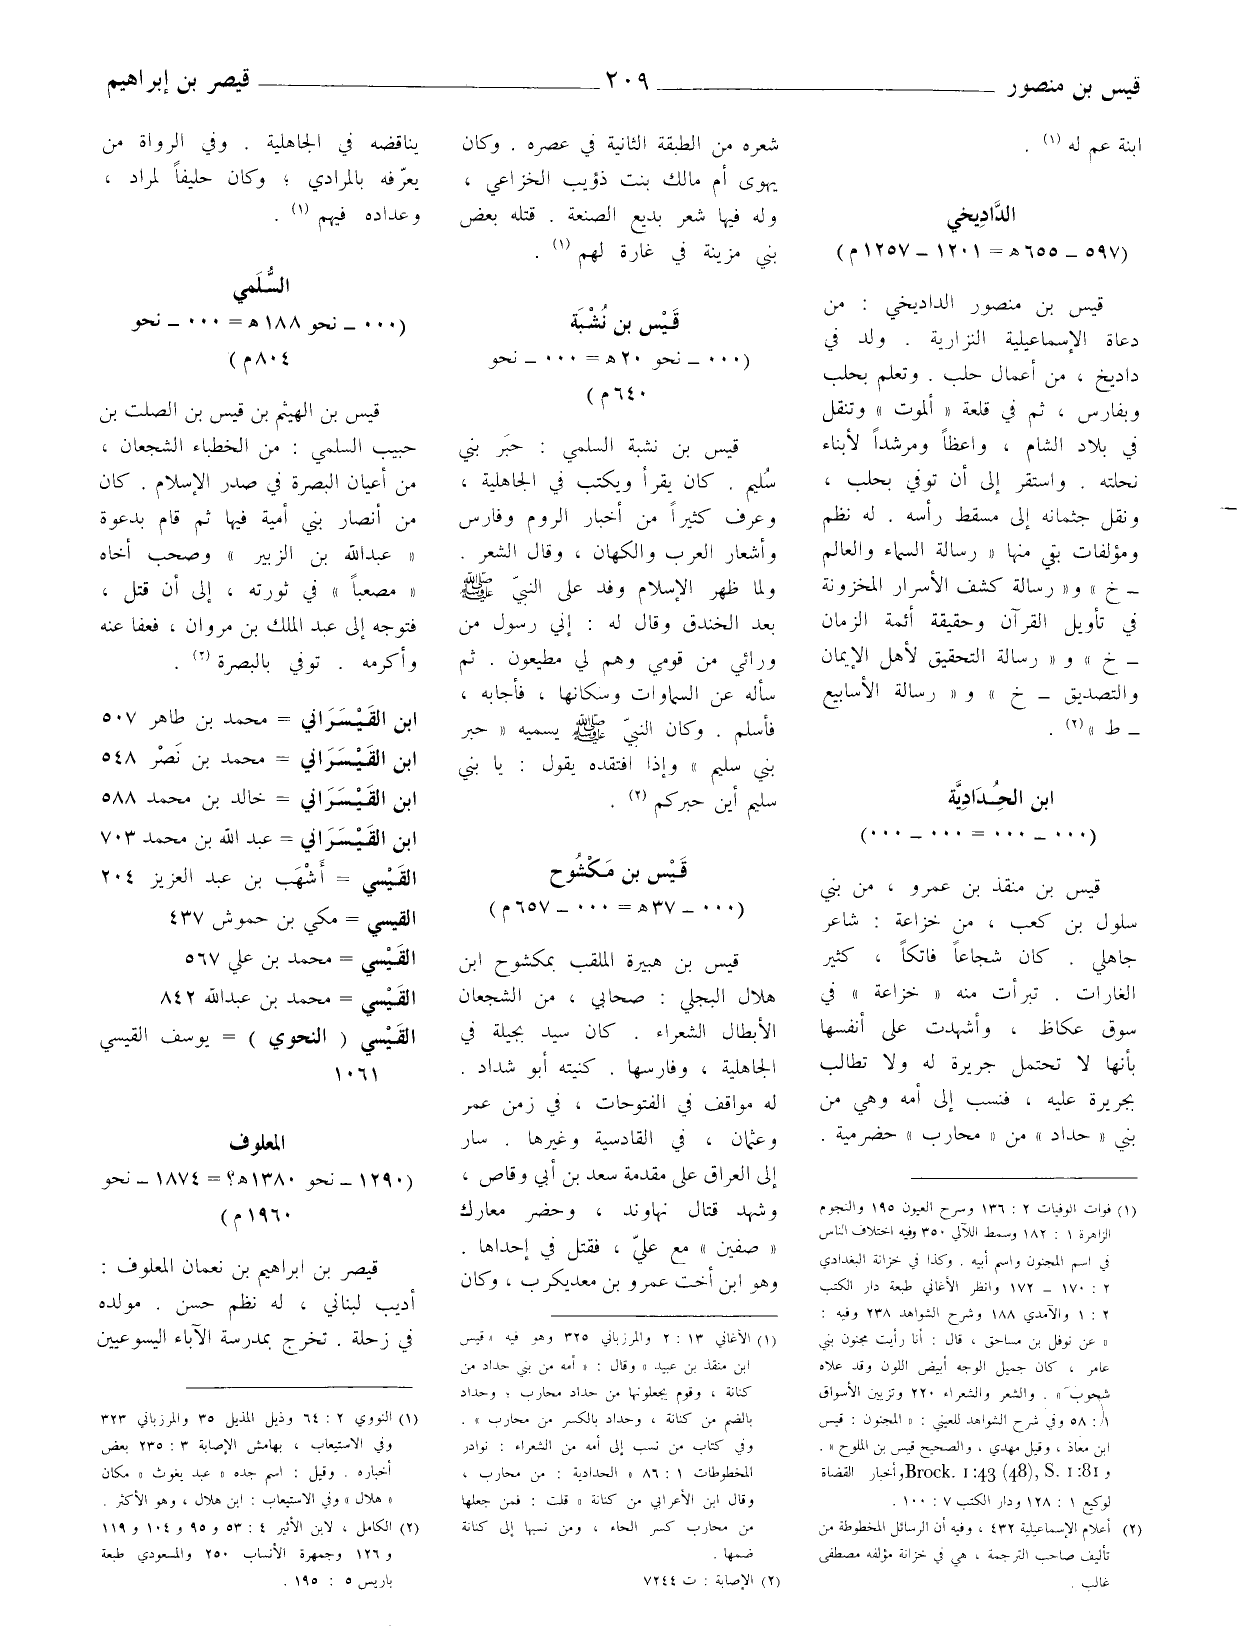 قيس بن منصور
٢٠٩
قيصر بن إبراهيم
ابنة عم له (١) .
الدَّادِيخي
(٥٩٧ – ٦٥٥ ه = ١٢٠١ – ١٢٥٧ م)
قيس بن منصور الداديخي : من
دعاة الإسماعيلية النزارية . ولد في
داديخ ، من أعمال حلب . وتعلم بحلب
وبفارس ، ثم في قلعة « ألموت » وتنقل
في بلاد الشام ، واعظاً ومرشداً لأبناء
نحلته . واستقر إلى أن توفي بحلب ،
ونقل جثمانه إلى مسقط رأسه . له نظم
ومؤلفات بقي منها « رسالة السماء والعالم
– خ » و« رسالة كشف الأسرار المخزونة
في تأويل القرآن وحقيقة أئمة الزمان
– خ » و « رسالة التحقيق لأهل الإيمان
والتصديق – خ » و « رسالة الأسابيع
– ط »(٢) .
ابن الحُدَادِيَّة
(٠٠٠ – ٠٠٠ = ٠٠٠ – ٠٠٠)
قيس بن منقذ بن عمرو ، من بني
سلول بن كعب ، من خزاعة : شاعر
جاهلي . كان شجاعاً فاتكاً ، كثير
الغارات . تبرأت منه « خزاعة » في
سوق عكاظ ، وأشهدت على أنفسها
بأنها لا تحتمل جريرة له ولا تطالب
بجريرة عليه ، فنسب إلى أمه وهي من
بني « حداد » من « محارب » حضرمية .
(١) فوات الوفيات ٢ : ١٣٦ وسرح العيون ١٩٥ والنجوم
الزاهرة ١ : ١٨٢ وسمط اللآلي ٣٥٠ وفيه اختلاف الناس
في اسم المجنون واسم أبيه . وكذا في خزانة البغدادي
٢ : ١٧٠ – ١٧٢ وانظر الأغاني طبعة دار الكتب
٢ : ١ والآمدي ١٨٨ وشرح الشواهد ٢٣٨ وفيه :
« عن نوفل بن مساحق ، قال : أنا رأيت مجنون بني
عامر ، كان جميل الوجه أبيض اللون وقد علاه
شحوب » . والشعر والشعراء ٢٢٠ وتزيين الأسواق
١ : ٥٨ وفي شرح الشواهد للعيني : « المجنون : قيس
ابن معاذ ، وقيل مهدي ، والصحيح قيس بن الملوح » .
و Brock. 1:43 (48), S. 1:81, أخبار القضاة
لوكيع ١ : ١٢٨ ودار الكتب ٧ : ١٠٠ .
(٢) أعلام الإسماعيلية ٤٣٢ ، وفيه أن الرسائل المخطوطة من
تأليف صاحب الترجمة ، هي في خزانة مؤلفه مصطفى
غالب .
شعره من الطبقة الثانية في عصره . وكان
يهوى أم مالك بنت ذؤيب الخزاعي ،
وله فيها شعر بديع الصنعة . قتله بعض
بني مزينة في غارة لهم (١) .
قَيْس بن نُشْبَة
(٠٠٠ – نحو ٢٠ ه = ٠٠٠ – نحو
٦٤٠ م )
قيس بن نشبة السلمي : حبَر بني
سُليم . كان يقرأ ويكتب في الجاهلية ،
وعرف كثيراً من أخبار الروم وفارس
وأشعار العرب والكهان ، وقال الشعر .
ولما ظهر الإسلام وفد على النبيّ ﷺ
بعد الخندق وقال له : إني رسول من
ورائي من قومي وهم لي مطيعون . ثم
سأله عن السماوات وسكانها ، فأجابه ،
فأسلم . وكان النبيّ ﷺ يسميه « حبر
بني سليم » وإذا افتقده يقول : يا بني
سليم أين حبركم (٢) .
قَيْس بن مَكْشُوح
(٠٠٠ – ٣٧ ه = ٠٠٠ – ٦٥٧ م)
قيس بن هبيرة الملقب بمكشوح ابن
هلال البجلي : صحابي ، من الشجعان
الأبطال الشعراء . كان سيد بجيلة في
الجاهلية ، وفارسها . كنيته أبو شداد .
له مواقف في الفتوحات ، في زمن عمر
وعثمان ، في القادسية وغيرها . سار
إلى العراق على مقدمة سعد بن أبي وقاص ،
وشهد قتال نهاوند ، وحضر معارك
« صفين » مع عليّ ، فقتل في إحداها .
وهو ابن أخت عمرو بن معديكرب ، وكان
(١) الأغاني ١٣ : ٢ والمرزباني ٣٢٥ وهو فيه « قيس
ابن منقذ بن عبيد » وقال : « أمه من بني حداد من
كنانة ، وقوم يجعلونها من حداد محارب ؛ وحداد
بالضم من كنانة ، وحداد بالكسر من محارب » .
وفي كتاب من نسب إلى أمه من الشعراء : نوادر
المخطوطات ١ : ٨٦ « الحدادية : من محارب ،
وقال ابن الأعرابي من كنانة » قلت : فمن جعلها
من محارب كسر الحاء ، ومن نسبها إلى كنانة
ضمها .
(٢) الإصابة : ت ٧٢٤٤
يناقضه في الجاهلية . وفي الرواة من
يعرّفه بالمرادي ؛ وكان حليفاً لمراد ،
وعداده فيهم (١) .
السُّلَمي
(٠٠٠ – نحو ١٨٨ ه = ٠٠٠ – نحو
٨٠٤ م )
قيس بن الهيثم بن قيس بن الصلت بن
حبيب السلمي : من الخطباء الشجعان ،
من أعيان البصرة في صدر الإسلام . كان
من أنصار بني أمية فيها ثم قام بدعوة
« عبدالله بن الزبير » وصحب أخاه
« مصعباً » في ثورته ، إلى أن قتل ،
فتوجه إلى عبد الملك بن مروان ، فعفا عنه
وأكرمه . توفي بالبصرة (٢) .
ابن القَيْسَرَاني = محمد بن طاهر ٥٠٧
ابن القَيْسَرَاني = محمد بن نَصْر ٥٤٨
ابن القَيْسَرَاني = خالد بن محمد ٥٨٨
ابن القَيْسَرَاني = عبد الله بن محمد ٧٠٣
القَيْسي = أَشْهَب بن عبد العزيز ٢٠٤
القيسي = مكي بن حموش ٤٣٧
القَيْسي = محمد بن علي ٥٦٧
القَيْسي = محمد بن عبدالله ٨٤٢
القَيْسي ( النحوي ) = يوسف القيسي
١٠٦١
المعلوف
(١٢٩٠ – نحو ١٣٨٠ ه؟ = ١٨٧٤ – نحو
١٩٦٠ م)
قيصر بن ابراهيم بن نعمان المعلوف :
أديب لبناني ، له نظم حسن . مولده
في زحلة . تخرج بمدرسة الآباء اليسوعيين
(١) النووي ٢ : ٦٤ وذيل المذيل ٣٥ والمرزباني ٣٢٣
وفي الاستيعاب ، بهامش الإصابة ٣ : ٢٣٥ بعض
أخباره . وقيل : اسم جده « عبد يغوث » مكان
« هلال » وفي الاستيعاب : ابن هلال ، وهو الأكثر .
(٢) الكامل ، لابن الأثير ٤ : ٥٣ و ٩٥ و ١٠٤ و ١١٩
و ١٢٦ وجمهرة الأنساب ٢٥٠ والمسعودي طبعة
باريس ٥ : ١٩٥ .